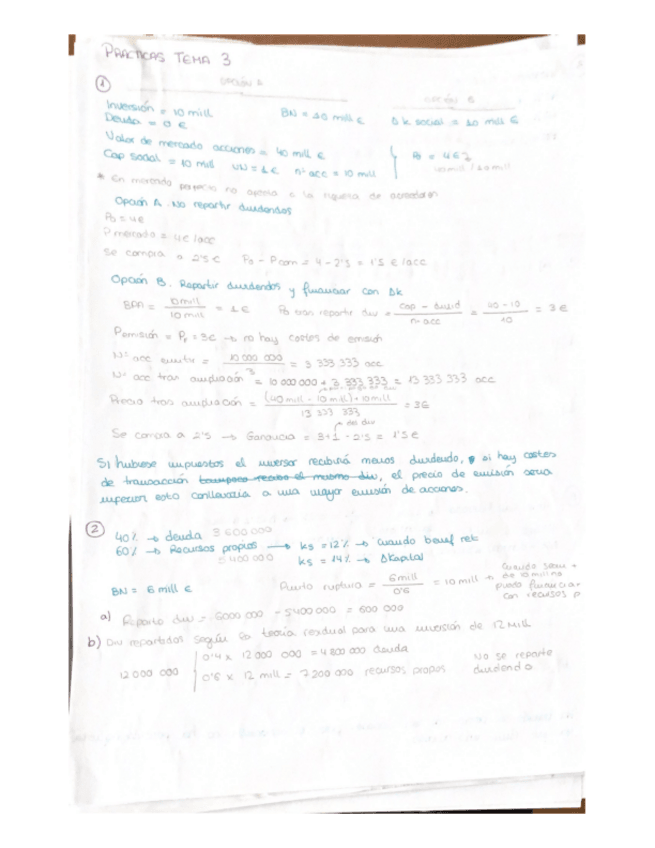 PRACTICAS TEMA 3
1
OPCIÓN A
OPCIÓN B
Inversión = 10 mill
Deuda = 0 €
BN = 10 mill €
Δ k social = 10 mill €
Valor de mercado acciones = 40 mill €
Cap social = 10 mill VN = 1 € nº acc = 10 mill
P0 = 4€
40 mill / 10 mill
* En mercado perfecto no aporta a la riqueza de
Opción A. No repartir dividendos
P0 = 4€
P mercado = 4€/acc
Se compra a 2'5 € P0 - Pcom = 4 - 2'5 = 1'5 €/acc
Opción B. Repartir dividendos y financiar con Δk
BPA = 10 mill / 10 mill = 1 € P0 tras repartir div = cap - divid / nº acc = 40 - 10 / 10 = 3 €
Pemisión = = 3€ → no hay costes de emisión
Nº acc emitir = 10 000 000 / 3 = 3 333 333 acc
Nº acc tras ampliación = 10 000 000 + 3 333 333 = 13 333 333 acc
Precio tras ampliación = (40 mill - 10 mill) + 10 mill / 13 333 333 = 3€
del div
Se compra a 2'5 → Ganancia = 3+1 - 2'5 = 1'5 €
Si hubiese impuestos el inversor recibirá menos dividendo, si hay costes
de transacción el mismo div, el precio de emisión sería
superior, esto conllevaría a una mayor emisión de acciones.
2
40% → deuda 3 600 000
60% → Recursos propios → ks = 12% → Cuando benef ret
5 400 000 ks = 14% → ΔKapital
BN = 6 mill € Punto ruptura = 6 mill / 0'6 = 10 mill →
Cuando sean +
de 10 mill no
puedo financiar
con recursos p
a) Reparto div = 6000 000 - 5400 000 = 600 000
b) Div repartidos según la teoría residual para una inversión de 12 mill
12 000 000
0'4 x 12 000 000 = 4 800 000 deuda
0'6 x 12 mill = 7 200 000 recursos propios
No se reparte
dividendo